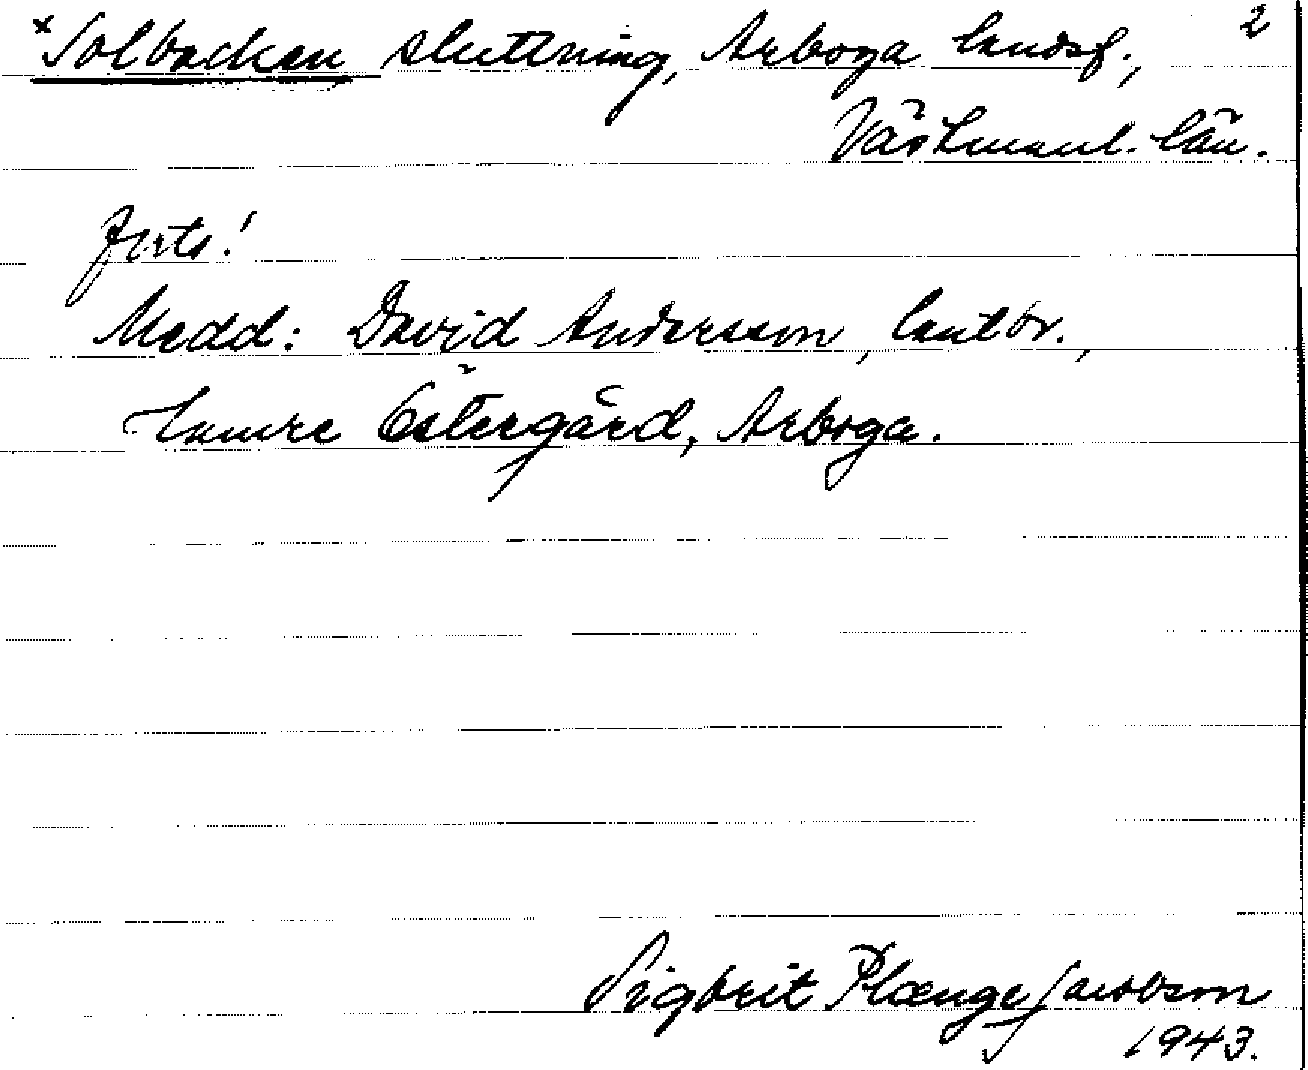 2
*Solbacken sluttning, Arboga landsf.,
Västmanl. län.
forts!
Medd: David Andersson, lantbr.,
Östergård, Arboga.
Sigbrit Plænge Jacobson
1943.